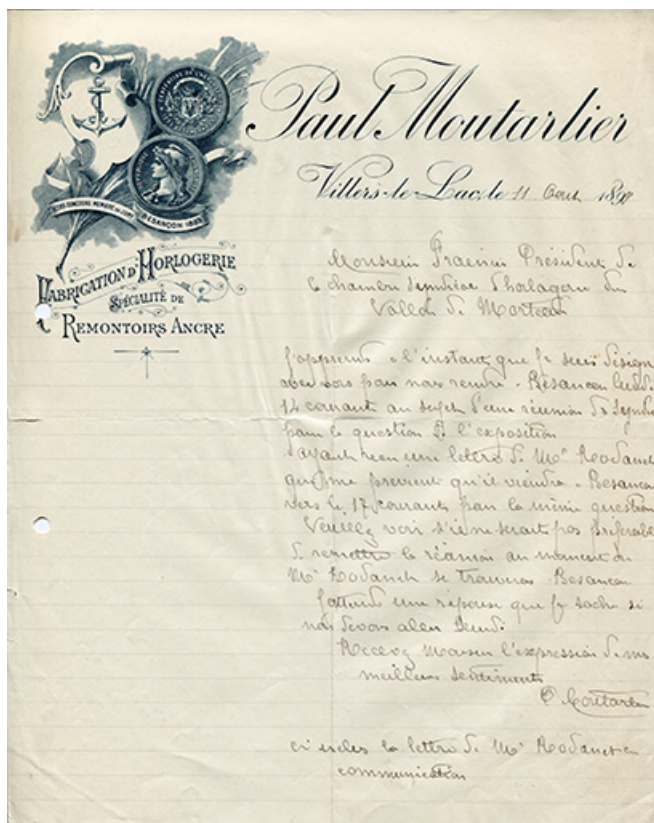 Paul Moutarlier
Villers-le-Lac, le 11 Aout 1898
BESANÇON 1893
FABRICATION D'HORLOGERIE
SPÉCIALITÉ DE
REMONTOIRS ANCRE
Monsieur Président de
la chambre syndicale d'horlogerie du
Vallon de Morteau
J'apprends à l'instant que je suis désigné
avec vous pour nous rendre à Besançon lundi
14 courant au sujet d'une réunion du Syndicat
pour la question de l'exposition
ayant reçu une lettre de Mr Rodanet
qui me prévient qu'il viendra à Besançon
vers le 17 courant pour la même question
Veuillez voir s'il ne serait pas préférable
de remettre la réunion au moment où
Mr Rodanet se trouvera à Besançon
J'attends une réponse que je sache si
nous devons aller
Recevez Monsieur l'expression de mes
meilleurs sentiments
P. Moutarlier
ci inclus la lettre de Mr Rodanet en
communication